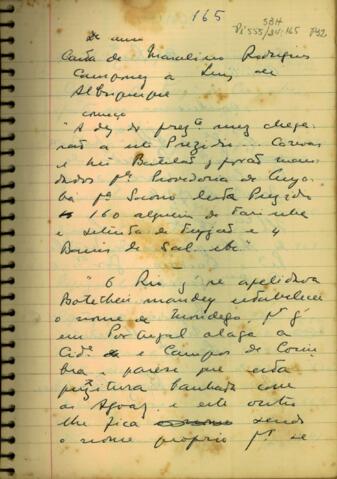 165
SBH
Pi 555/84:165 P92
Carta de Marcelino Rodrigues
Camponez a Luiz de
Albuquerque
começo
"A dez do prezte mez chega-
rão a este Prezidio... Canoas
e hũ Batelão, q forão man-
dados pla Provedoria de Cuya-
ba pa Socorro deste Prezidio
160 alqueires de Farinha
e setenta de Feyjão e 4
Bruacas de Sal etc"
"O Rio q se apelidava
Botetheu mandey estabelecer
o nome de Mondego, pr q
em Portugal alaga a
Cide e Campos de Coim-
bra e parese que esta
pintura banhada com
as Agoas, e este outro
lhe fica sendo
o nome proprio pr se